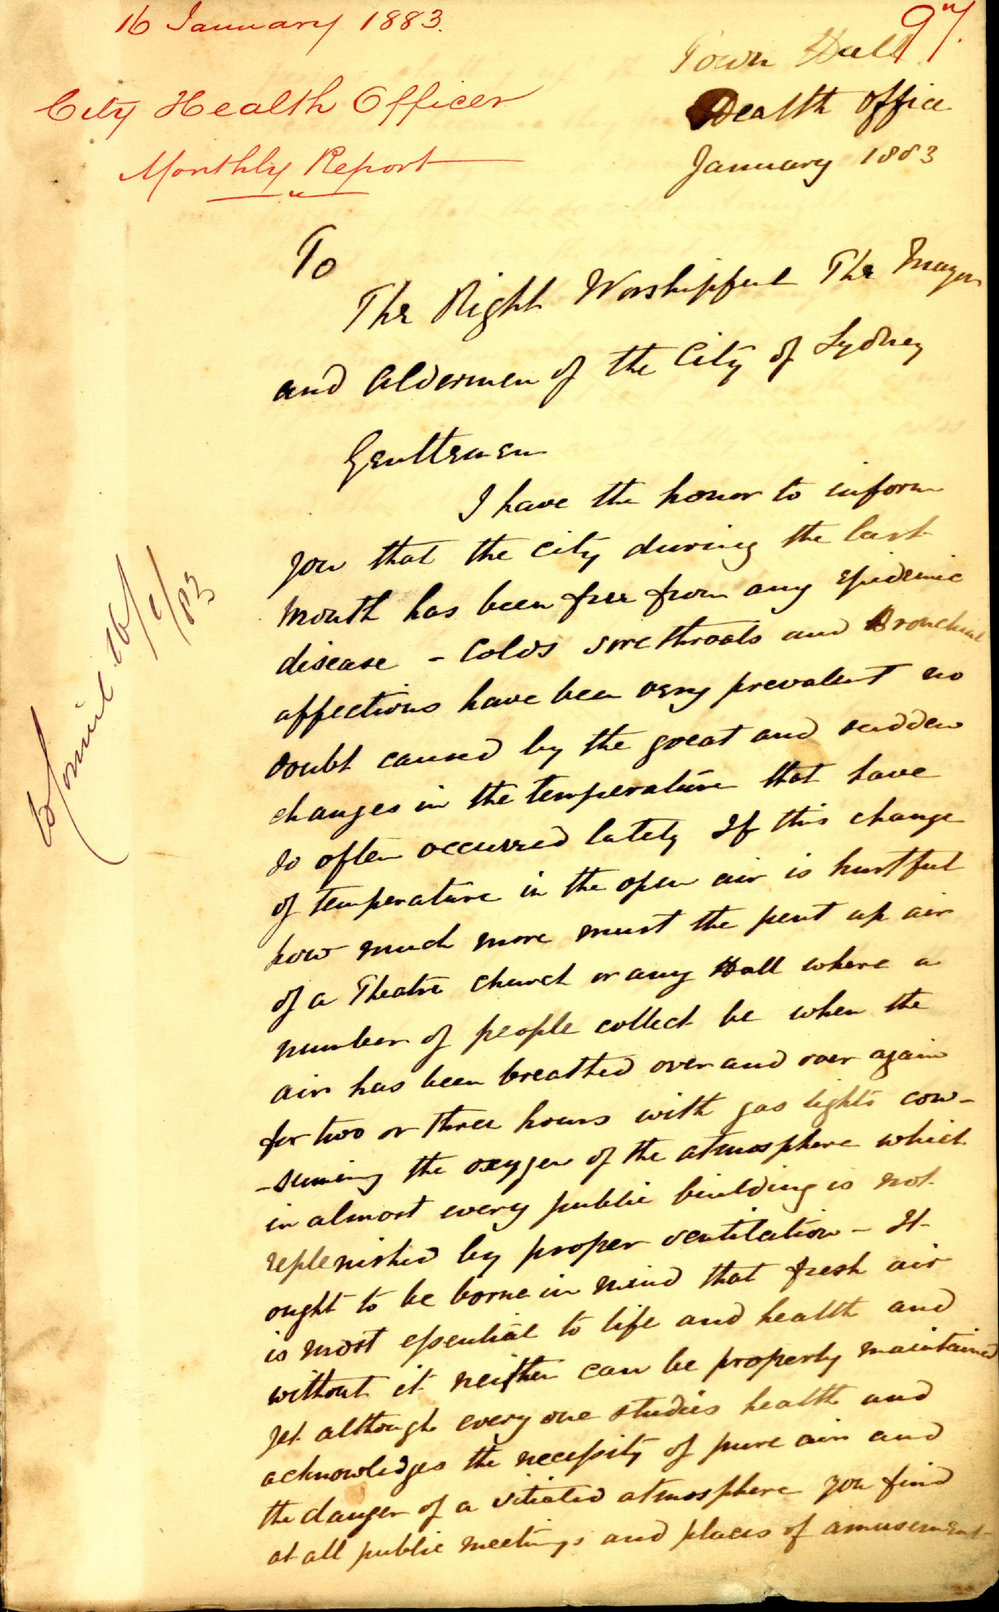 16 January 1883.
97.
City Health Officer
Monthly Report
Town Hall
Health Office
January 1883
To
The Right Worshipful The Mayor
and Aldermen of the City of Sydney
Gentlemen
I have the honor to inform
you that the city during the last
month has been free from any epidemic
disease - Colds sore throats and Bronchial
affections have been very prevalent no
doubt caused by the great and sudden
changes in the temperature that have
so often occurred lately If this change
of temperature in the open air is hurtful
how much more must the pent up air
of a Theatre Church or any Hall where a
number of people collect be when the
air has been breathed over and over again
for two or three hours with gas lights con-
-suming the oxygen of the atmosphere which
in almost every public building is not
replenished by proper ventilation - It
ought to be borne in mind that fresh air
is most essential to life and health and
without it neither can be properly maintained
yet although every one studies health and
acknowledges the necessity of pure air and
the danger of a vitiated atmosphere you find
at all public meetings and places of amusement
16/1/83